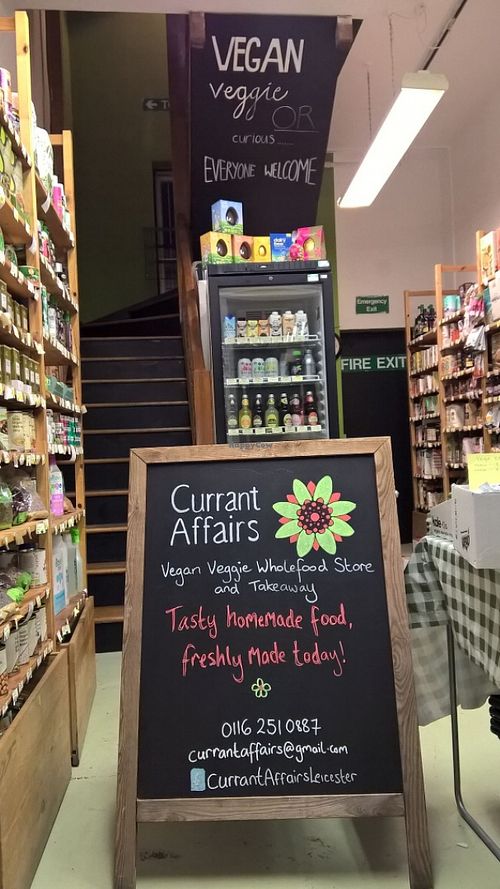 VEGAN
veggie
OR
curious......
EVERYONE WELCOME
Emergency
Exit
FIRE EXIT
Currant
Affairs
Vegan Veggie Wholefood Store
and Takeaway
Tasty homemade food,
freshly made today!
0116 251 0887
currantaffairs@gmail.com
CurrantAffairsLeicester